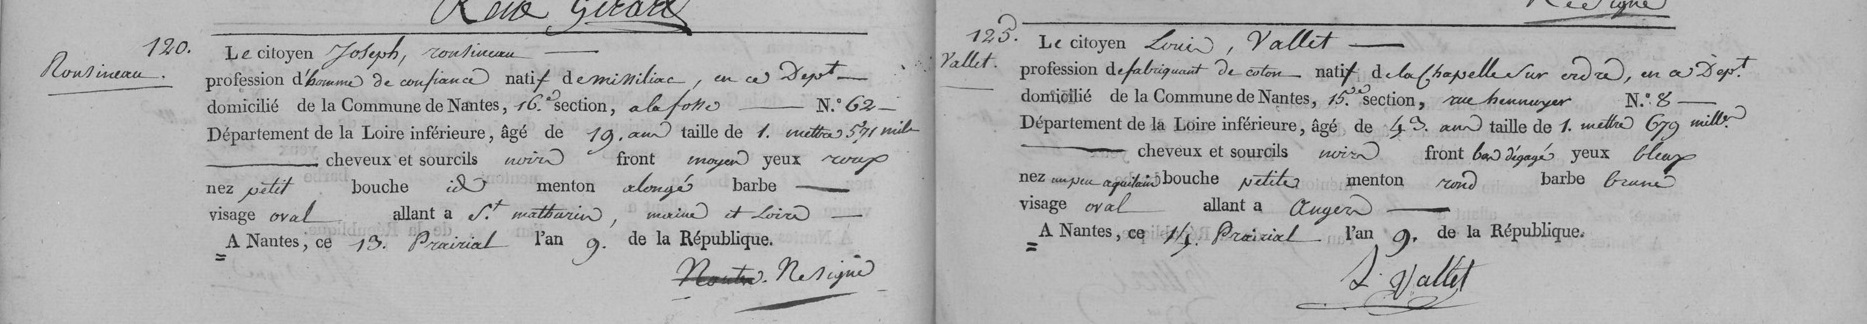 René Girard
120.
Ronsineau.
Le citoyen Joseph, ronsineau
profession d'homme de confiance natif de missiliac, en ce Dept
domicilié de la Commune de Nantes, 16.e section, a la fosse N.º 62
Département de la Loire inférieure, âgé de 19. ans taille de 1. mettre 571 mill
cheveux et sourcils noirs front moyen yeux roux
nez petit bouche id menton alongé barbe
visage oval allant a St. mathurin, maine et Loire
A Nantes, ce 13. Prairial l'an 9. de la République.
Ne Signe
Ne Signe
125.
Vallet.
Le citoyen Louis, Vallet
profession de fabriquant de coton natif de la Chapelle Sur erdre, en ce Dept.
domicilié de la Commune de Nantes, 15.e section, rue hennuyer N.º 8
Département de la Loire inférieure, âgé de 43. ans taille de 1. mettre 679 mill.
cheveux et sourcils noirs front bas dégagé yeux bleux
nez un peu aquilain bouche petite menton rond barbe brune
visage oval allant a Angers
A Nantes, ce 14. Prairial l'an 9. de la République.
L. Vallet